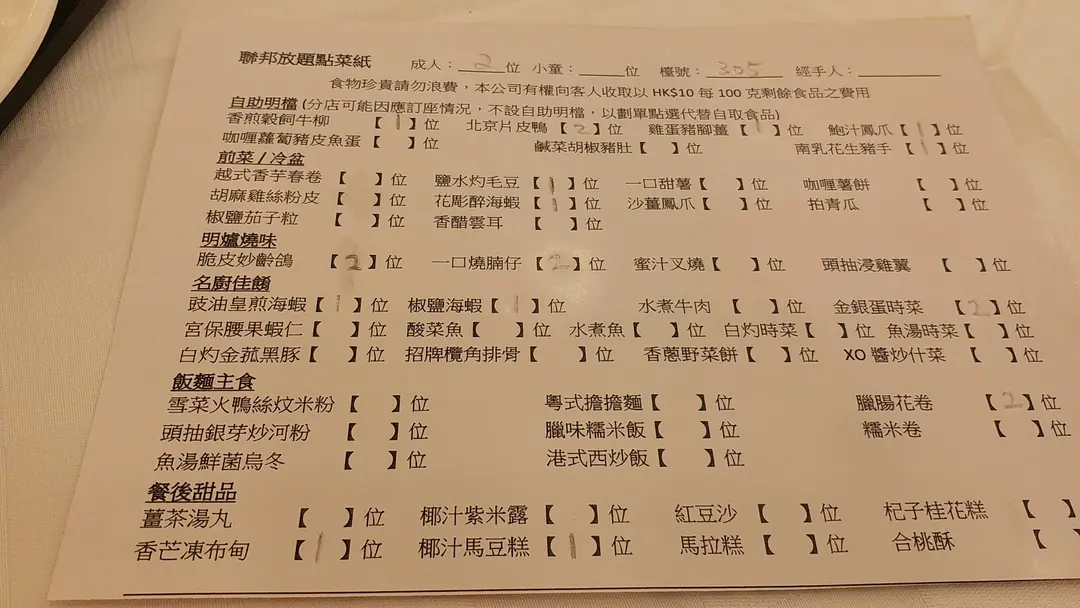 聯邦放題點菜紙 成人：2位 小童：____位 檯號：305 經手人：____
食物珍貴請勿浪費，本公司有權向客人收取以 HK$10 每 100 克剩餘食品之費用
自助明檔 (分店可能因應訂座情況，不設自助明檔，以劃單點選代替自取食品)
香煎穀飼牛柳 【1】位 北京片皮鴨【2】位 雞蛋豬腳薑【1】位 鮑汁鳳爪【1】位
咖喱蘿蔔豬皮魚蛋【 】位 鹹菜胡椒豬肚【 】位 南乳花生豬手【1】位
煎菜 / 冷盆
越式香芋春卷 【 】位 鹽水灼毛豆【1】位 一口甜薯【 】位 咖喱薯餅 【 】位
胡麻雞絲粉皮 【 】位 花彫醉海蝦【1】位 沙薑鳳爪【 】位 拍青瓜 【 】位
椒鹽茄子粒 【 】位 香醋雲耳 【 】位
明爐燒味
脆皮妙齡鴿 【2】位 一口燒腩仔【2】位 蜜汁叉燒【 】位 頭抽浸雞翼 【 】位
名廚佳餚
豉油皇煎海蝦【1】位 椒鹽海蝦【1】位 水煮牛肉 【 】位 金銀蛋時菜 【2】位
宮保腰果蝦仁【 】位 酸菜魚【 】位 水煮魚【 】位 白灼時菜【 】位 魚湯時菜【 】位
白灼金菰黑豚【 】位 招牌欖角排骨【 】位 香蔥野菜餅【 】位 XO 醬炒什菜 【 】位
飯麵主食
雪菜火鴨絲炆米粉 【 】位 粵式擔擔麵【 】位 臘腸花卷 【2】位
頭抽銀芽炒河粉 【 】位 臘味糯米飯【 】位 糯米卷 【 】位
魚湯鮮菌烏冬 【 】位 港式西炒飯【 】位
餐後甜品
薑茶湯丸 【 】位 椰汁紫米露【 】位 紅豆沙【 】位 杞子桂花糕 【 】
香芒凍布甸 【1】位 椰汁馬豆糕【1】位 馬拉糕【 】位 合桃酥 【